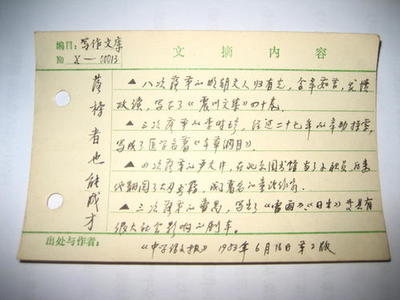 编目：写作文库
文摘内容
№ X—00013
落榜者也能成才
▲八次落第的明朝文人归有光，含辛茹苦，发愤
攻读，写出了《震川文集》四十卷。
▲三次落第的李时珍，经过二十七年的辛勤探索，
写成了医学名著《本草纲目》
▲四次落第的
代翻阅了大量书籍，成著名的
▲三次落第的曹禺，写出了《雷雨》、《日出》等具有
很大社会影响的剧本。
出处与作者：
《中学语文报》1983年6月16日第2版